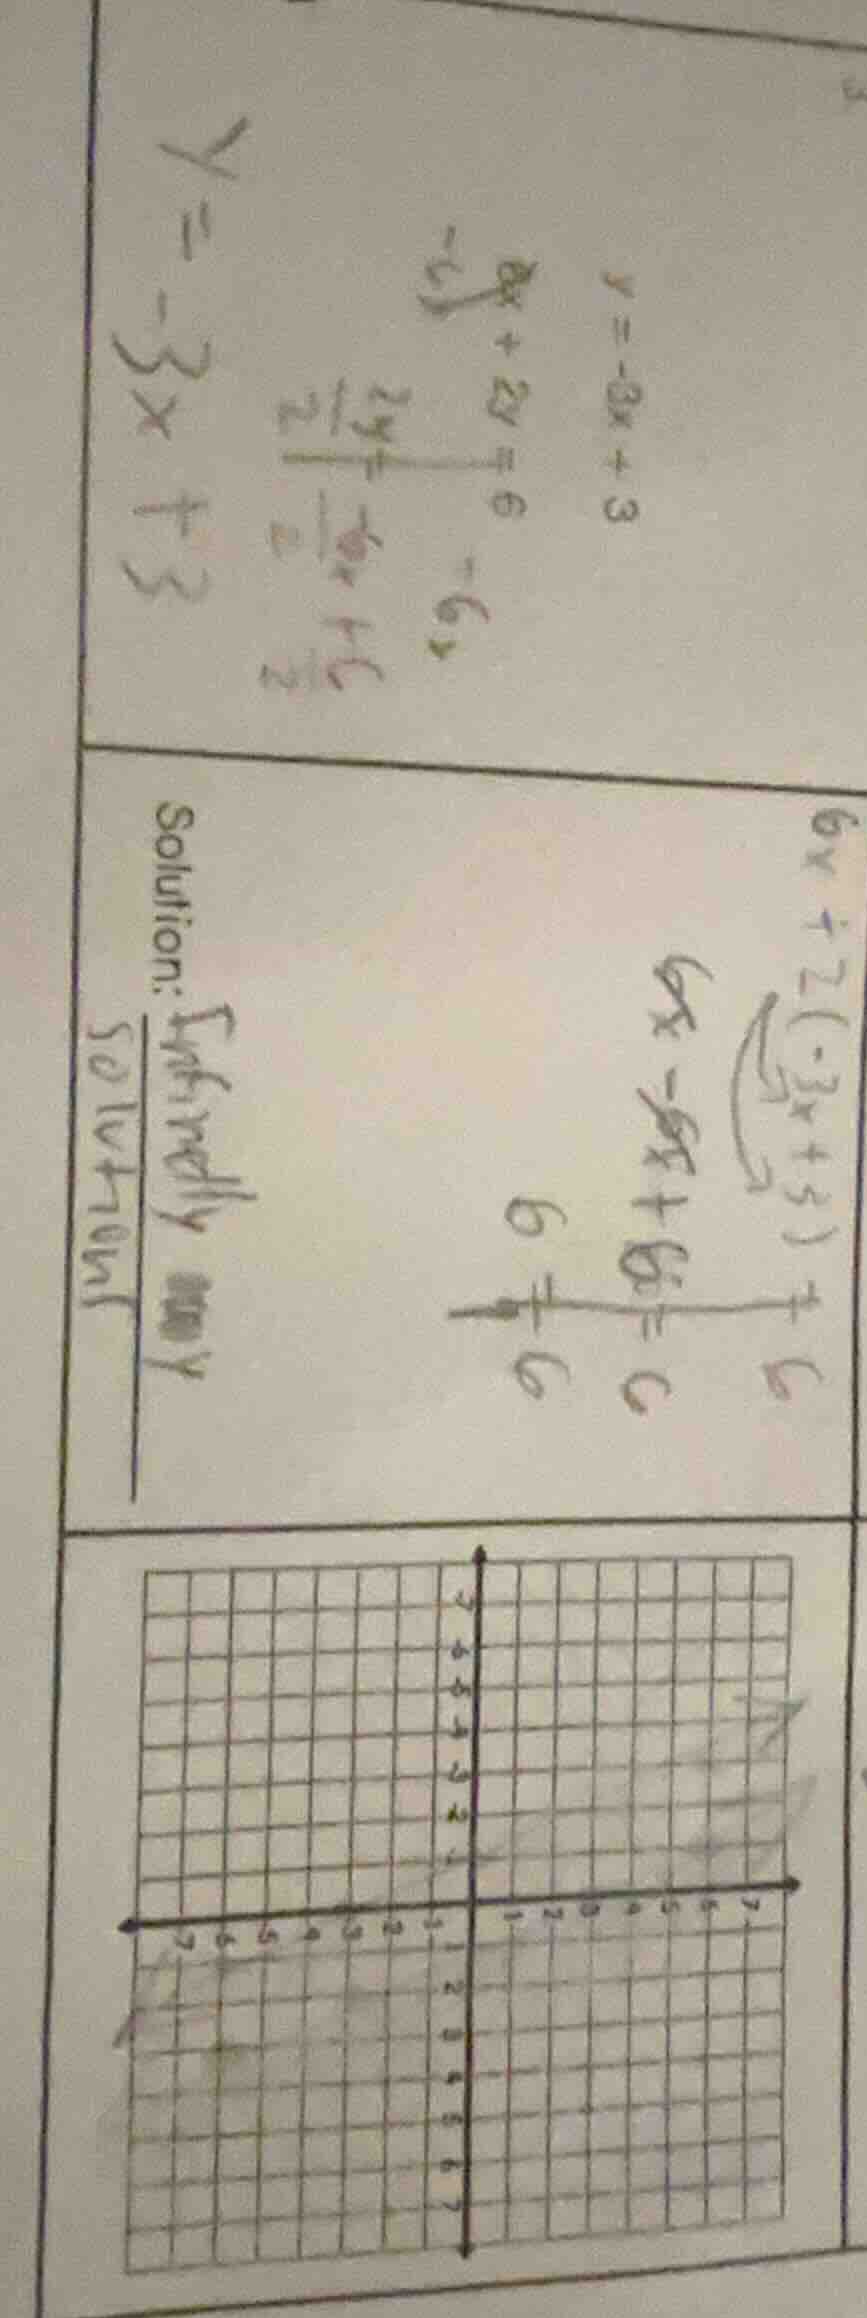 y = -3x + 3
6x + 2y = 6
-6x -6x
2y = -6x + 6
2 2 2
y = -3x + 3
6x + 2(-3x + 3) = 6
6x - 6x + 6 = 6
6 = 6
Solution:
solutions
7
6
5
4
3
2
1
-7 -6 -5 -4 -3 -2 -1 1 2 3 4 5 6 7
-1
-2
-3
-4
-5
-6
-7